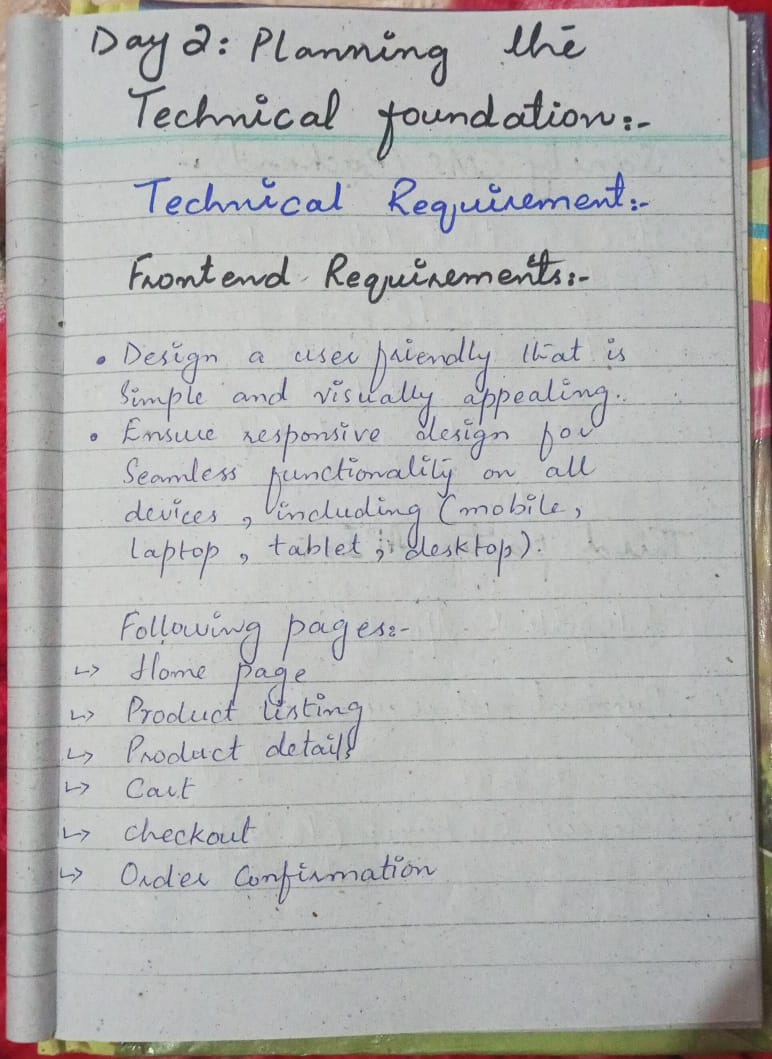 Day 2: Planning the
Technical foundation:-
Technical Requirement:-
Frontend Requirements:-
• Design a user friendly that is
Simple and visually appealing.
• Ensure responsive design for
Seamless functionality on all
devices, including (mobile,
laptop, tablet, desktop).
Following pages:-
↳ Home page
↳ Product listing
↳ Product details
↳ Cart
↳ checkout
↳ Order Confirmation